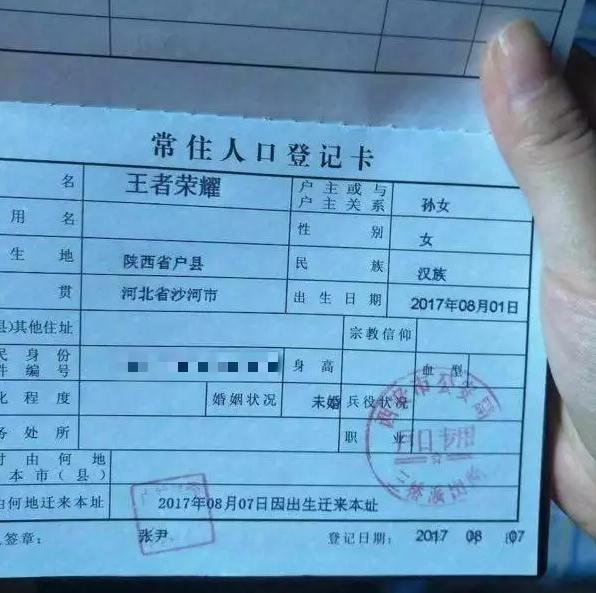 常住人口登记卡
名 王者荣耀 户主或与户主关系 孙女
用名 性别 女
生地 陕西省户县 民族 汉族
贯 河北省沙河市 出生日期 2017年08月01日
县)其他住址 宗教信仰
民身份件编号 身高 血型
化程度 婚姻状况 未婚 兵役状况
务处所 职业
时由何地本市(县)
由何地迁来本址 2017年08月07日因出生迁来本址
人签章： 张尹 登记日期： 2017 08 07
西安市公安局
户口专用